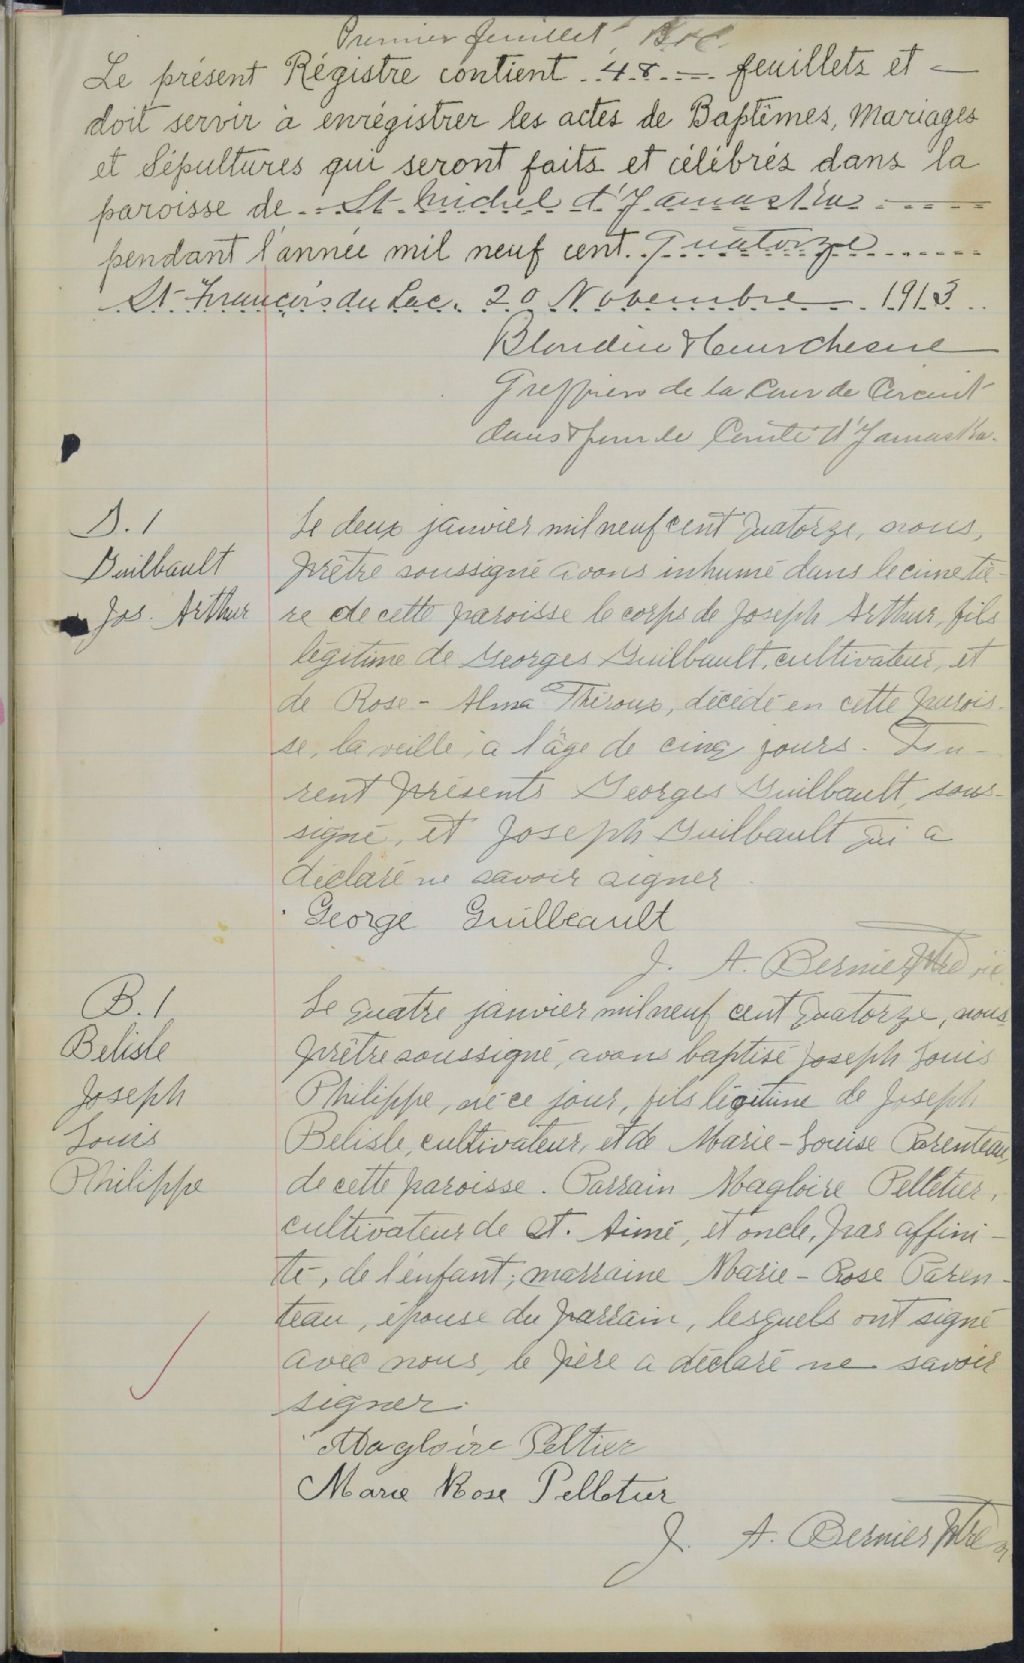 Premier feuillet B & C.
Le présent Régistre contient 48 feuillets et
doit servir à enrégistrer les actes de Baptêmes, Mariages
et Sépultures qui seront faits et célébrés dans la
paroisse de St Michel d'Yamaska
pendant l'année mil neuf cent quatorze
St François du Lac. 20 Novembre 1913
Blondin & Courchesne
Greffiers de la Cour de Circuit
dans & pour le Comté d'Yamaska.
S. 1
Guilbault
Jos. Arthur
Le deux janvier mil neuf cent quatorze, nous,
prêtre soussigné avons inhumé dans le cimetiè-
re de cette paroisse le corps de Joseph Arthur, fils
légitime de Georges Guilbault, cultivateur, et
de Rose-Alma Théroux, décédé en cette parois-
se, la veille, à l'âge de cinq jours. Fu-
rent présents Georges Guilbault, sous-
signé, et Joseph Guilbault qui a
déclaré ne savoir signer
George Guilbeault
J. A. Bernier Ptre vic
B. 1
Belisle
Joseph
Louis
Philippe
Le quatre janvier mil neuf cent quatorze, nous
prêtre soussigné, avons baptisé Joseph Louis
Philippe, né ce jour, fils légitime de Joseph
Belisle, cultivateur, et de Marie-Louise Parenteau,
de cette paroisse. Parrain Magloire Pelletier,
cultivateur de St. Aimé, et oncle, par affini-
té, de l'enfant; marraine Marie-Rose Paren-
teau, épouse du parrain, lesquels ont signé
avec nous, le père a déclaré ne savoir
signer.
Magloire Peltier
Marie Rose Pelletier
J. A. Bernier Ptre